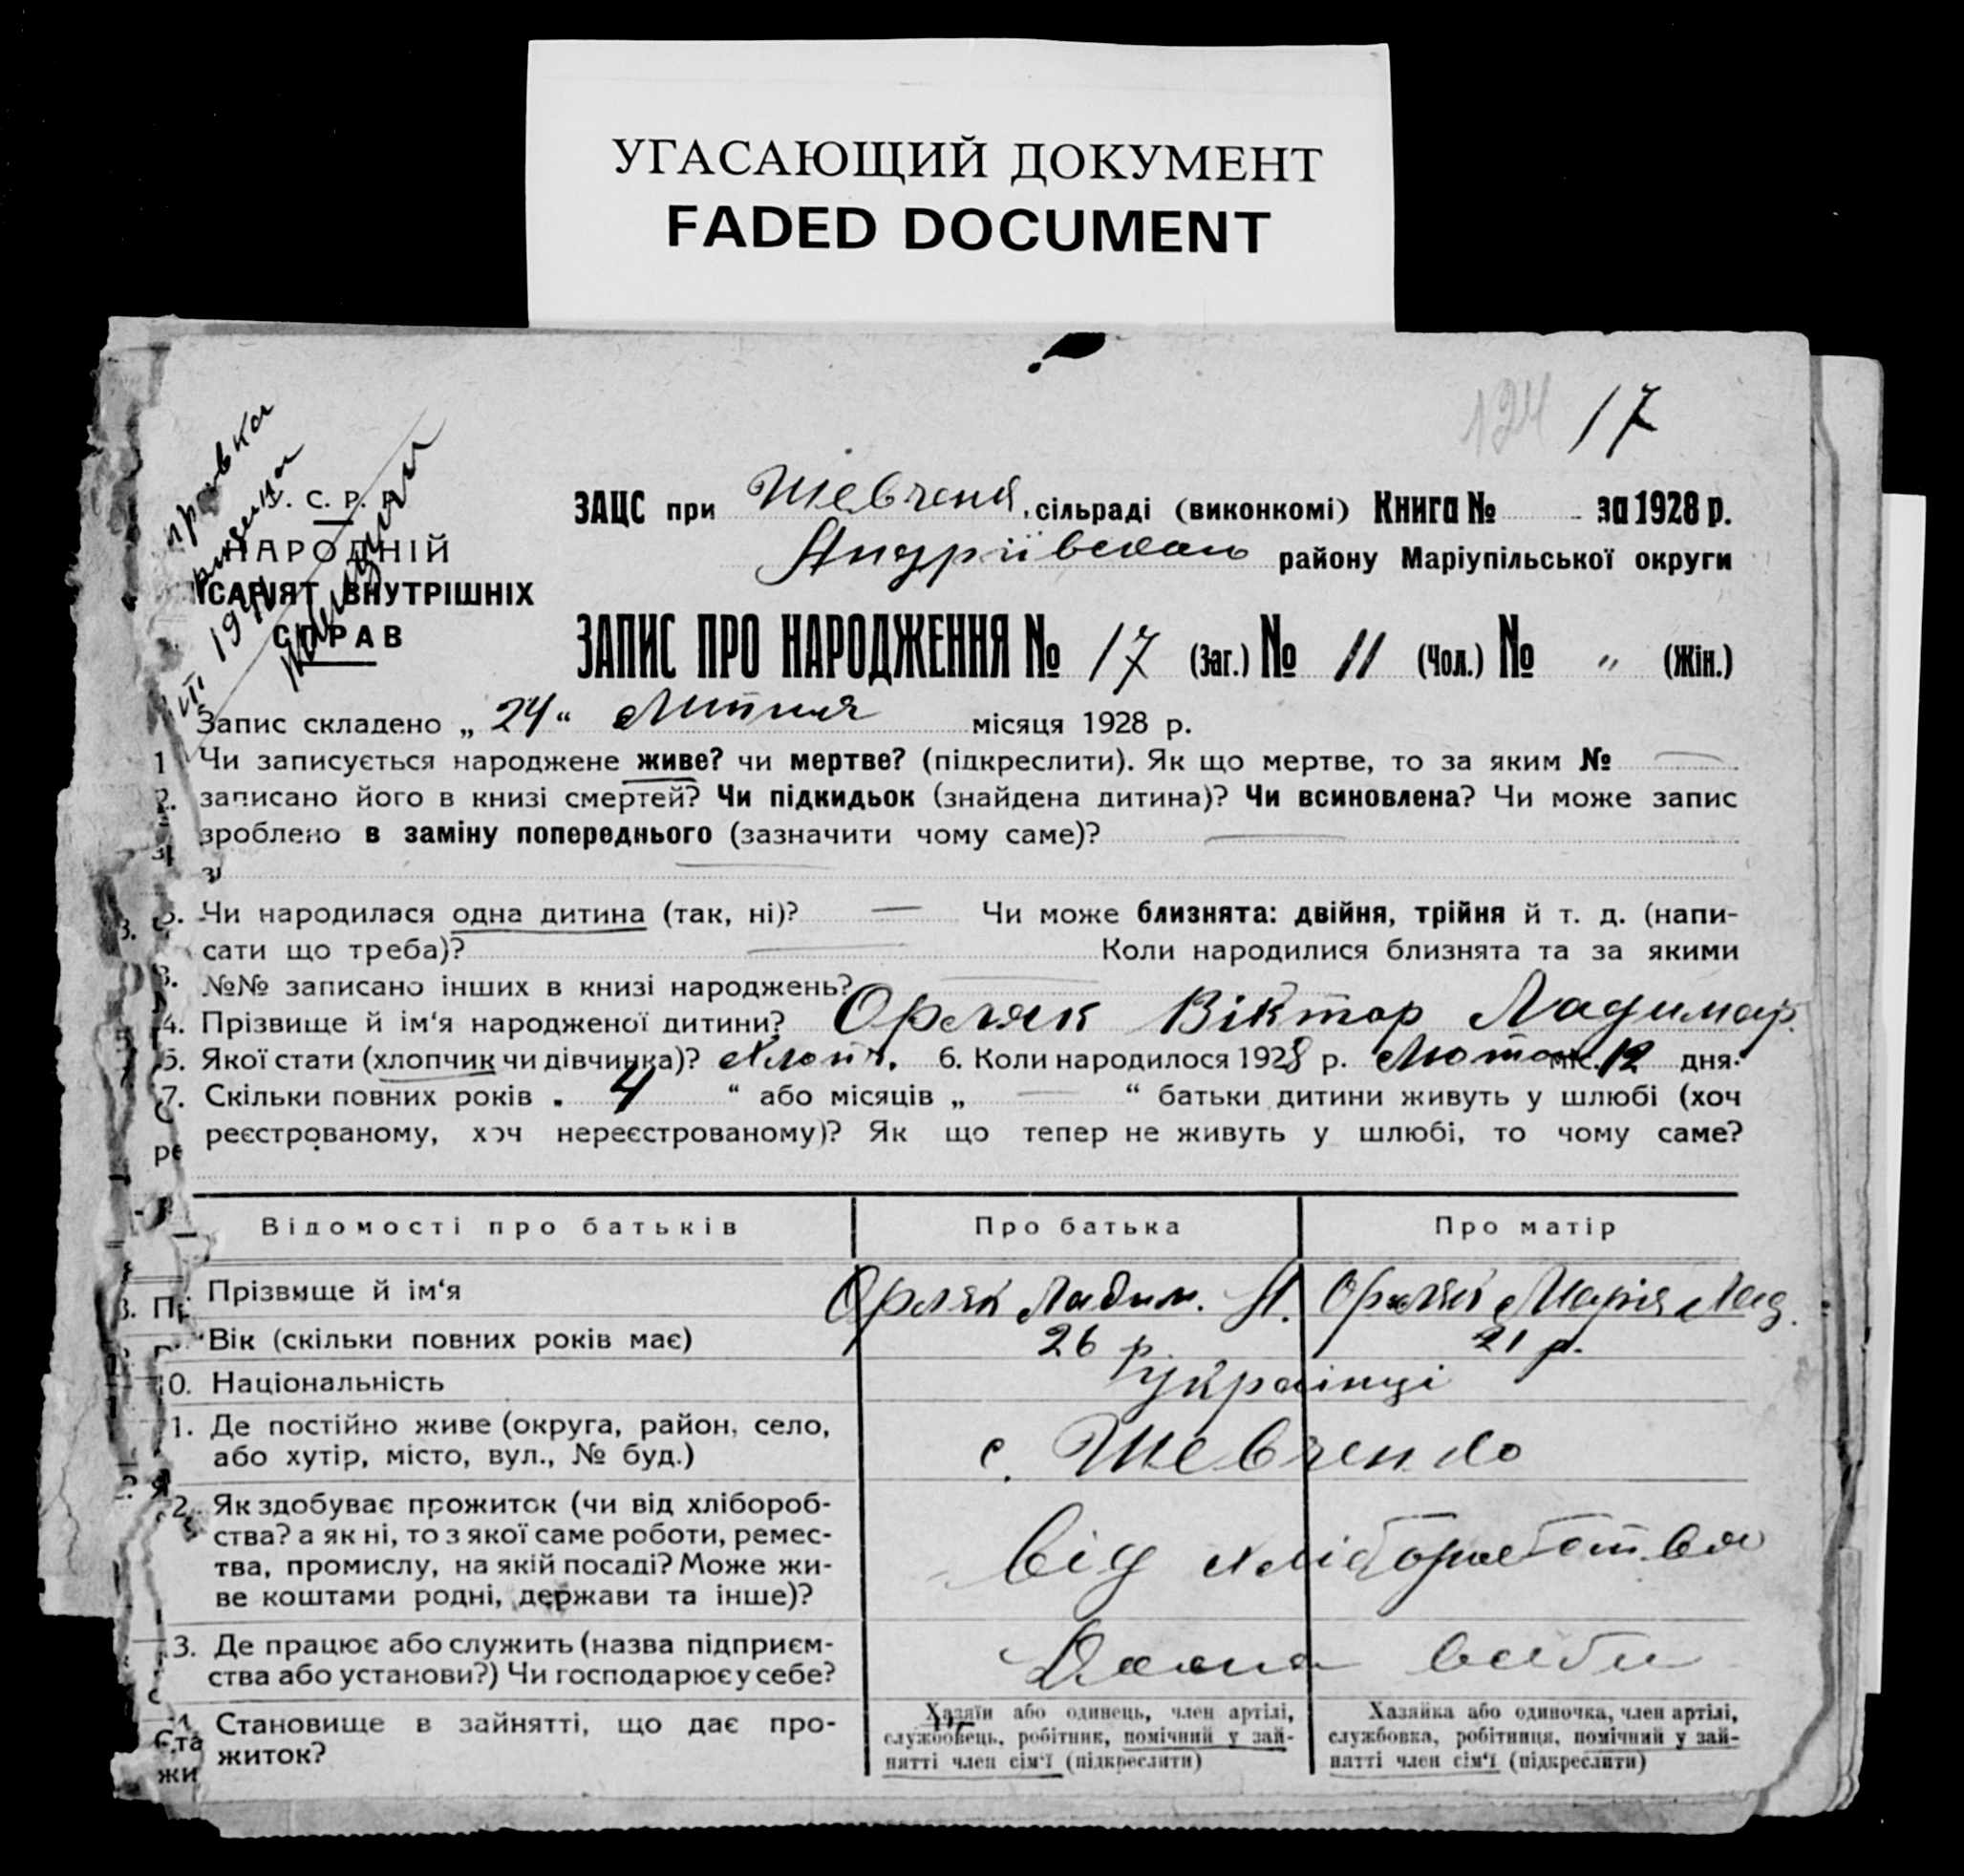 УГАСАЮЩИЙ ДОКУМЕНТ
FADED DOCUMENT
124 17
У. С. Р. Р.
НАРОДНІЙ
ІСАРІЯТ ВНУТРІШНІХ
СПРАВ
ЗАЦС при Шевченк. сільраді (виконкомі) Книга № за 1928 р.
Андріївсько району Маріупільської округи
ЗАПИС ПРО НАРОДЖЕННЯ № 17 (Заг.) № 11 (Чол.) № " (Жін.)
Запис складено „ 24 “ місяця 1928 р.
1 Чи записується народжене живе? чи мертве? (підкреслити). Як що мертве, то за яким № —
2. записано його в книзі смертей? Чи підкидьок (знайдена дитина)? Чи всиновлена? Чи може запис
зроблено в заміну попереднього (зазначити чому саме)? —
Чи народилася одна дитина (так, ні)? — Чи може близнята: двійня, трійня й т. д. (напи-
сати що треба)? — Коли народилися близнята та за якими
№№ записано інших в книзі народжень? —
4. Прізвище й ім‘я народженої дитини? Орляк Віктор Ладимир.
5. Якої стати (хлопчик чи дівчинка)? Хлопч. 6. Коли народилося 1928 р. Лютого міс. 12 дня.
7. Скільки повних років „ 4 “ або місяців „ — “ батьки дитини живуть у шлюбі (хоч
реєстрованому, хоч нереєстрованому)? Як що тепер не живуть у шлюбі, то чому саме?
Відомості про батьків Про батька Про матір
Прізвище й ім‘я Орляк Ладим. Орляк Марія Лад.
Вік (скільки повних років має) 26 р. 21 р.
0. Національність українці
1. Де постійно живе (округа, район, село,
або хутір, місто, вул., № буд.) с. Шевченко
2. Як здобуває прожиток (чи від хлібороб-
ства? а як ні, то з якої саме роботи, ремес-
тва, промислу, на якій посаді? Може жи-
ве коштами родні, держави та інше)? від хліборобства
3. Де працює або служить (назва підприєм-
ства або установи?) Чи господарює у себе?
Становище в зайнятті, що дає про-
житок?
Хазяїн або одинець, член артілі,
службовець, робітник, помічний у зай-
нятті член сім‘ї (підкреслити)
Хазяйка або одиночка, член артілі,
службовка, робітниця, помічний у зай-
нятті член сім‘ї (підкреслити)